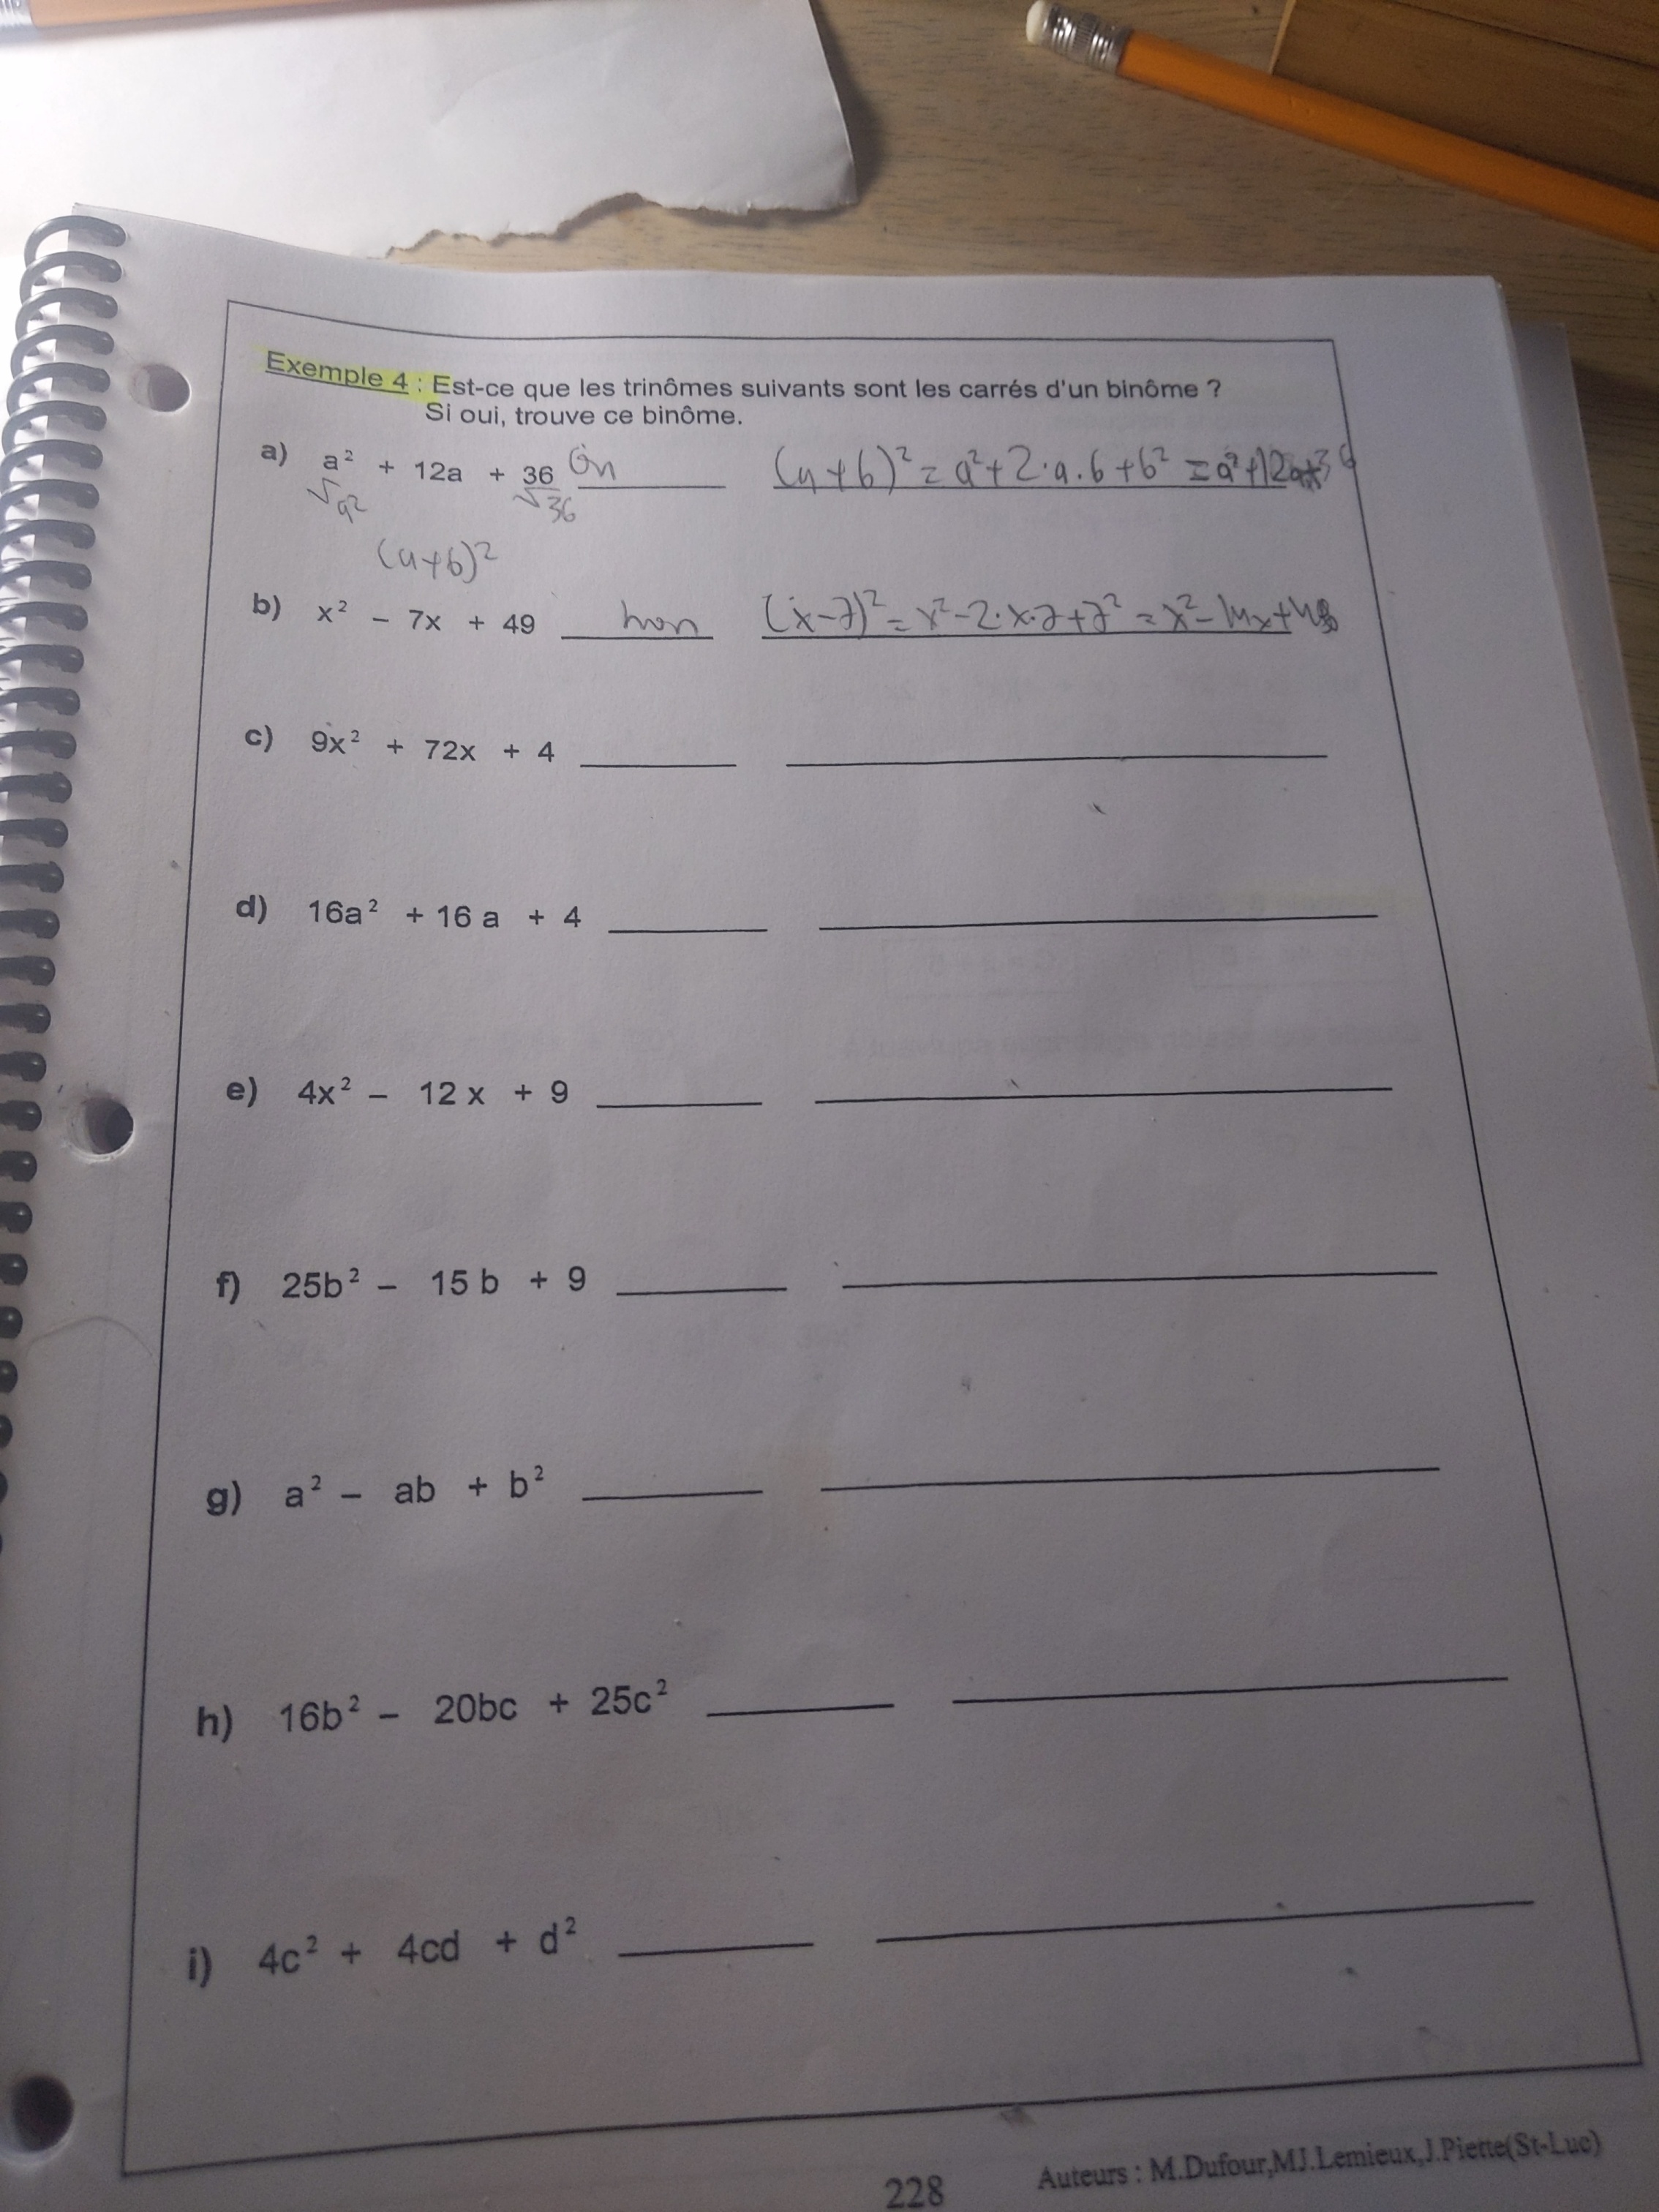 Exemple 4 : Est-ce que les trinômes suivants sont les carrés d'un binôme ?
Si oui, trouve ce binôme.
a) a² + 12a + 36 (a+6)² = a²+2·a·6+6² = a²+12a+36
√a² √36
(a+6)²
b) x² – 7x + 49 non (x-7)² = x²-2·x·7+7² = x²-14x+49
c) 9x² + 72x + 4
d) 16a² + 16 a + 4
e) 4x² – 12 x + 9
f) 25b² – 15 b + 9
g) a² – ab + b²
h) 16b² – 20bc + 25c²
i) 4c² + 4cd + d²
228
Auteurs : M.Dufour,MJ.Lemieux,J.Piette(St-Luc)